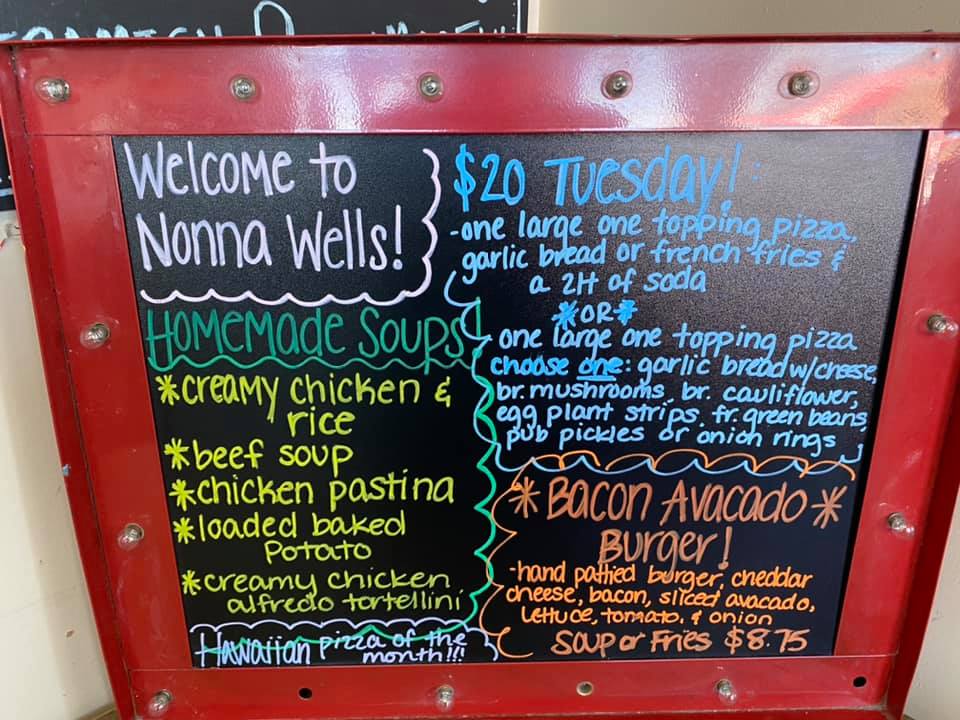 Welcome to
Nonna Wells!
Homemade Soups!
*creamy chicken &
rice
*beef soup
*chicken pastina
*loaded baked
Potato
*creamy chicken
alfredo tortellini
Hawaiian pizza of the
month!!!
$20 Tuesday!:
-one large one topping pizza,
garlic bread or french fries &
a 2H of soda
*OR*
one large one topping pizza
choose one: garlic bread w/cheese,
br. mushrooms, br. cauliflower,
egg plant strips, fr. green beans,
pub pickles or onion rings
*Bacon Avacado*
Burger!
-hand pattied burger, cheddar
cheese, bacon, sliced avacado,
lettuce, tomato, & onion
Soup or Fries $8.75